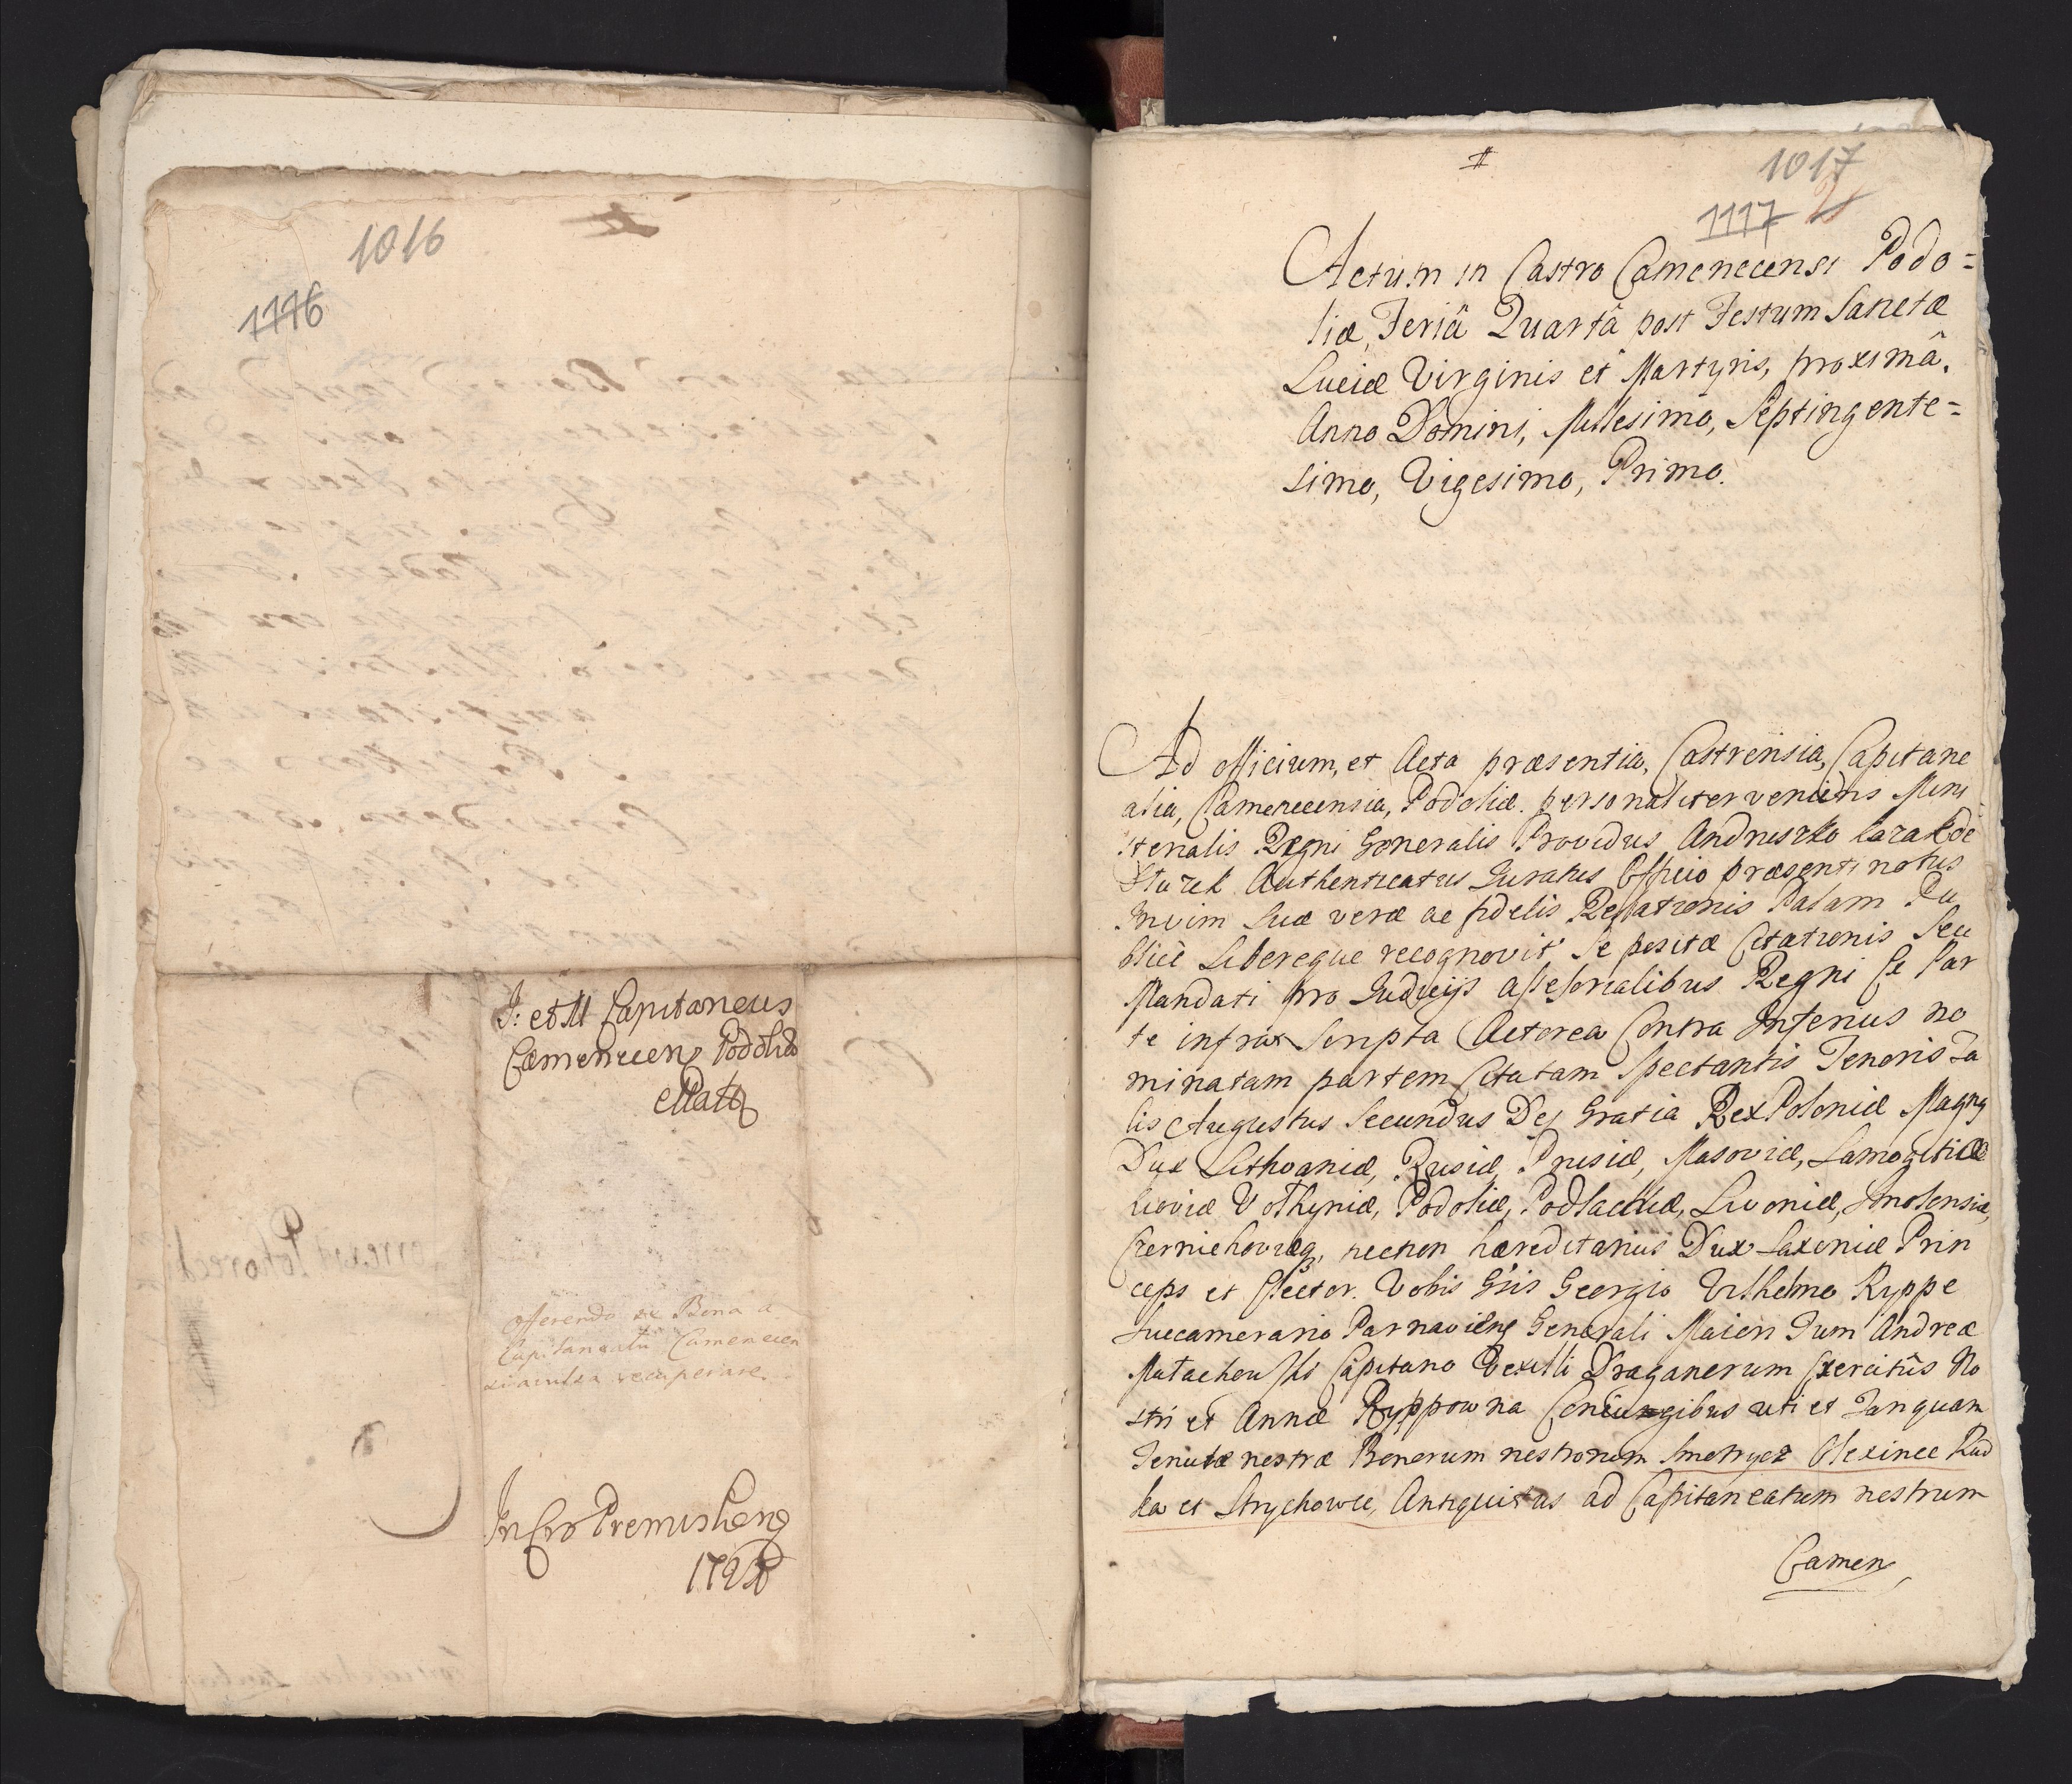 1016
1116
J: et M Capitaneus
Camenecens Podoliæ
offerendo ex Bona a
Capitaneatu Camenecen
avulsa recuperare
In Cro Premisliens
#
1017
1117 2
Actum in Castro Camenecensi Podo=
liæ, Feriâ Quartâ post Festum Sanctæ
Luciæ Virginis et Martyris, proximâ.
Anno Domini, Millesimo, Septingente=
simo, Vigesimo, Primo.
Ad officium, et Acta præsentia, Castrensia, Capitane
alia, Camenecensia, Podoliæ. personaliter veniens Mini
sterialis Regni Generalis Providus Andruszko kozak de
Authenticatus Juratus Officio præsenti notus
Invim Suæ veræ ac fidelis Relationis Palam Pu
blicè Libereque recognovit Se positæ Citationis Seu
Mandati pro Judicijs assessorialibus Regni Ex Par
te infra Scripta Actorea Contra Inferius no
minatam partem Citatam Spectantis Tenoris Ta
lis Augustus Secundus Dei Gratia Rex Poloniæ Magnus
Dux Lithvaniæ, Rusiæ, Prusiæ, Masoviæ, Samogitiæ
kioviæ Volhyniæ, Podoliæ, Podlachiæ, Livoniæ, Smolensiæ,
Czerniehoviæq, necnon hæreditarius Dux Saxoniæ Prin
ceps et Elector. Vobis Gsis Georgio Vilhelmo Ryppe
Succamerario Parnaviens Generali Maiori Tum Andreæ
Capitano Vexilli Draganorum Exercitûs No
stri et Annæ Ryppowna Coniungibus uti et Tanquam
Tenutæ nostræ Bonorum nostrorum Smotrycz Olexince Rud
ka et Strychowce, Antiquitus ad Capitaneatum nostrum
Camen